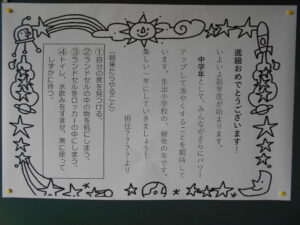 進級おめでとうございます！
いよいよ新年度が始まります。
中学年として、みんながさらにパワー
アップして活やくすることを期待して
います。生出小学校の、最後の年です。
楽しい一年にしていきましょう！
担任？？？？より
〈朝来たらやること〉
①自分の席を見つける。
②ランドセルの中の物を机にしまう。
③ランドセルをロッカーの中にしまう。
④トイレ、水飲みをすませ、席に座って
しずかに待つ。